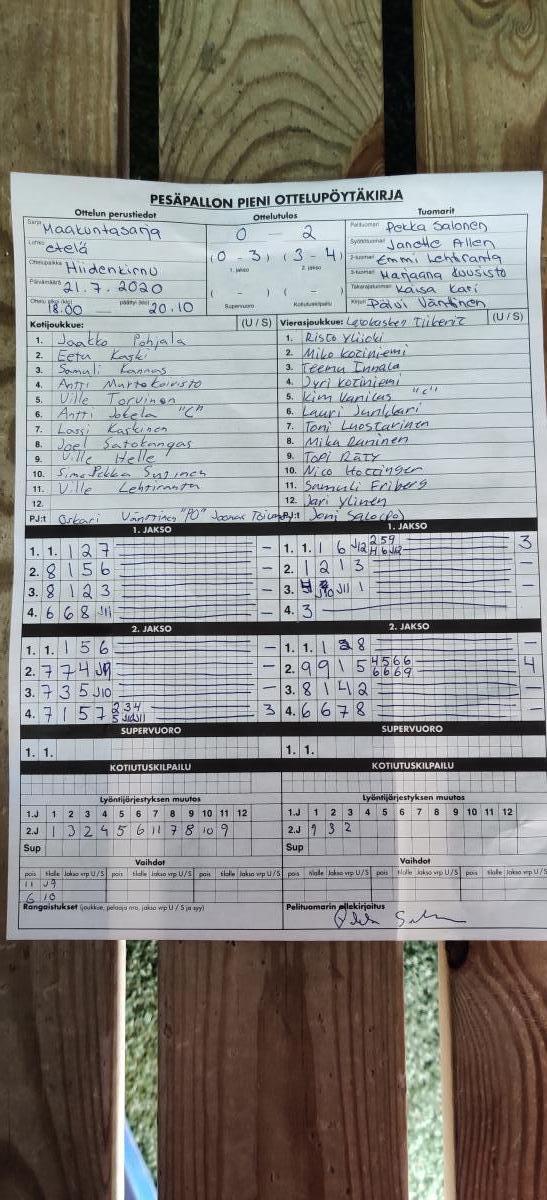 PESÄPALLON PIENI OTTELUPÖYTÄKIRJA
Ottelun perustiedot Ottelutulos Tuomarit
Sarja Maakuntasarja
Lohko etelä
Ottelupaikka Hiidenkirnu
Päivämäärä 21.7.2020
Ottelu alkoi (klo) 18.00 päättyi (klo) 20.10
0 — 2
(0 - 3) (3 - 4)
1. jakso 2. jakso
( - ) ( - )
Supervuoro Kotiutuskilpailu
Pelituomari Pekka Salonen
Syöttötuomari Janette Allen
2-tuomari Emmi Lehtiranta
3-tuomari Marjaana Kuusisto
Takarajatuomari Kaisa Kari
Kirjuri Päivi Vänttinen
Kotijoukkue: (U / S)
1. Jaakko Pohjala
2. Eetu Kaski
3. Samuli Kannas
4. Antti Murtokoivisto
5. Ville Torvinen
6. Antti Jokela "C"
7. Lassi Kaskinen
8. Joel Satokangas
9. Ville Helle
10. Simo-Pekka
11. Ville Lehtiranta
12.
PJ:t Oskari Vänttinen "PO" Joonas
Vierasjoukkue: Tiikerit (U / S)
1. Risto
2. Miko Koziniemi
3. Teemu Innala
4. Jyri Koziniemi
5. Kim Vanicas "C"
6. Lauri Junkkari
7. Toni Luostarinen
8. Mika
9. Topi Räty
10. Nico Hottinger
11. Samuli Friberg
12. Jari Ylinen
PJ:t Joni Salo (po)
1. JAKSO
1. 1. 1 2 7 –
2. 8 1 5 6 –
3. 8 1 2 3 –
4. 6 6 8 J11 –
1. JAKSO
1. 1. 1 6 J12 2 5 9 3
4 6 J12
2. 1 2 1 3 –
3. J10 J11 1 –
4. 3 –
2. JAKSO
1. 1. 1 5 6 –
2. 7 7 4 J9 –
3. 7 3 5 J10 –
4. 7 1 5 7 2 3 4 3
5 J10 J11
2. JAKSO
1. 1. 1 8 –
2. 9 9 1 5 4 5 6 6 4
6 6 6 9
3. 8 1 4 2 –
4. 6 6 7 8 –
SUPERVUORO
1. 1.
SUPERVUORO
1. 1.
KOTIUTUSKILPAILU
KOTIUTUSKILPAILU
Lyöntijärjestyksen muutos
1.J 1 2 3 4 5 6 7 8 9 10 11 12
2.J 1 3 2 4 5 6 11 7 8 10 9
Sup
Lyöntijärjestyksen muutos
1.J 1 2 3 4 5 6 7 8 9 10 11 12
2.J 9 3 2
Sup
Vaihdot
pois tilalle Jakso vrp U / S pois tilalle Jakso vrp U / S pois tilalle Jakso vrp U / S
11 J9
6 10
Vaihdot
pois tilalle Jakso vrp U / S pois tilalle Jakso vrp U / S pois tilalle Jakso vrp U / S
Rangaistukset (joukkue, pelaaja nro, jakso vrp U / S ja syy)
Pelituomarin allekirjoitus